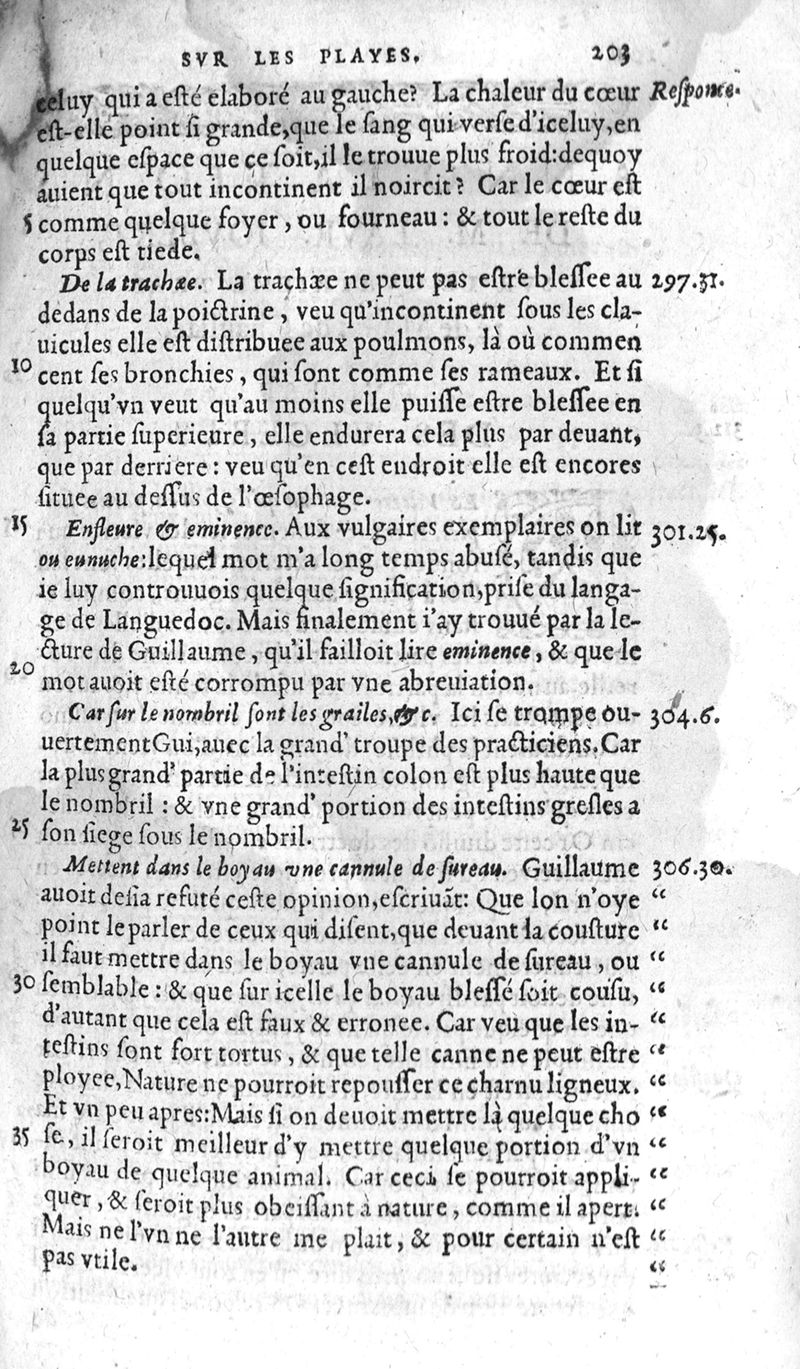 SVR LES PLAYES. 203
celuy qui a eſté elaboré au gauche? La chaleur du cœur Reſponce.
eſt-elle point ſi grande,que le ſang qui verſe d'iceluy,en
quelque eſpace que ce ſoit,il le trouue plus froid:dequoy
auient que tout incontinent il noircit? Car le cœur eſt
5 comme quelque foyer, ou fourneau: & tout le reſte du
corps eſt tiede.
De la trachæe. La trachæe ne peut pas eſtre bleſſee au 297.31.
dedans de la poictrine, veu qu'incontinent ſous les cla-
uicules elle eſt diſtribuee aux poulmons, là où commen
10 cent ſes bronchies, qui ſont comme ſes rameaux. Et ſi
quelqu'vn veut qu'au moins elle puiſſe eſtre bleſſee en
ſa partie ſuperieure, elle endurera cela plus par deuant,
que par derriere: veu qu'en ceſt endroit elle eſt encores
ſituee au deſſus de l'œſophage.
15 Enfleure & eminence. Aux vulgaires exemplaires on lit 301.25.
ou eunuche:lequel mot m'a long temps abuſé, tandis que
ie luy controuuois quelque ſignification,priſe du langa-
ge de Languedoc. Mais finalement i'ay trouué par la le-
cture de Guillaume, qu'il failloit lire eminence, & que le
20 mot auoit eſté corrompu par vne abreuiation.
Car ſur le nombril ſont les grailes,&c. Ici ſe trompe ou- 304.6.
uertementGui,auec la grand' troupe des practiciens.Car
la plus grand' partie de l'inteſtin colon eſt plus haute que
le nombril: & vne grand' portion des inteſtins greſles a
25 ſon ſiege ſous le nombril.
Mettent dans le boyau vne cannule de ſureau. Guillaume 306.30.
auoit deſia refuté ceſte opinion,eſcriuãt: Que lon n'oye “
point le parler de ceux qui diſent,que deuant la couſture “
il faut mettre dans le boyau vne cannule de ſureau, ou “
30 ſemblable: & que ſur icelle le boyau bleſſé ſoit couſu, “
d'autant que cela eſt faux & erronee. Car veu que les in- “
teſtins ſont fort tortus, & que telle canne ne peut eſtre “
ployee,Nature ne pourroit repouſſer ce charnu ligneux. “
Et vn peu apres:Mais ſi on deuoit mettre là quelque cho “
35 ſe, il ſeroit meilleur d'y mettre quelque portion d'vn “
boyau de quelque animal. Car ceci ſe pourroit appli- “
quer, & ſeroit plus obeiſſant à nature, comme il apert. “
Mais ne l'vn ne l'autre me plait, & pour certain n'eſt “
pas vtile. “